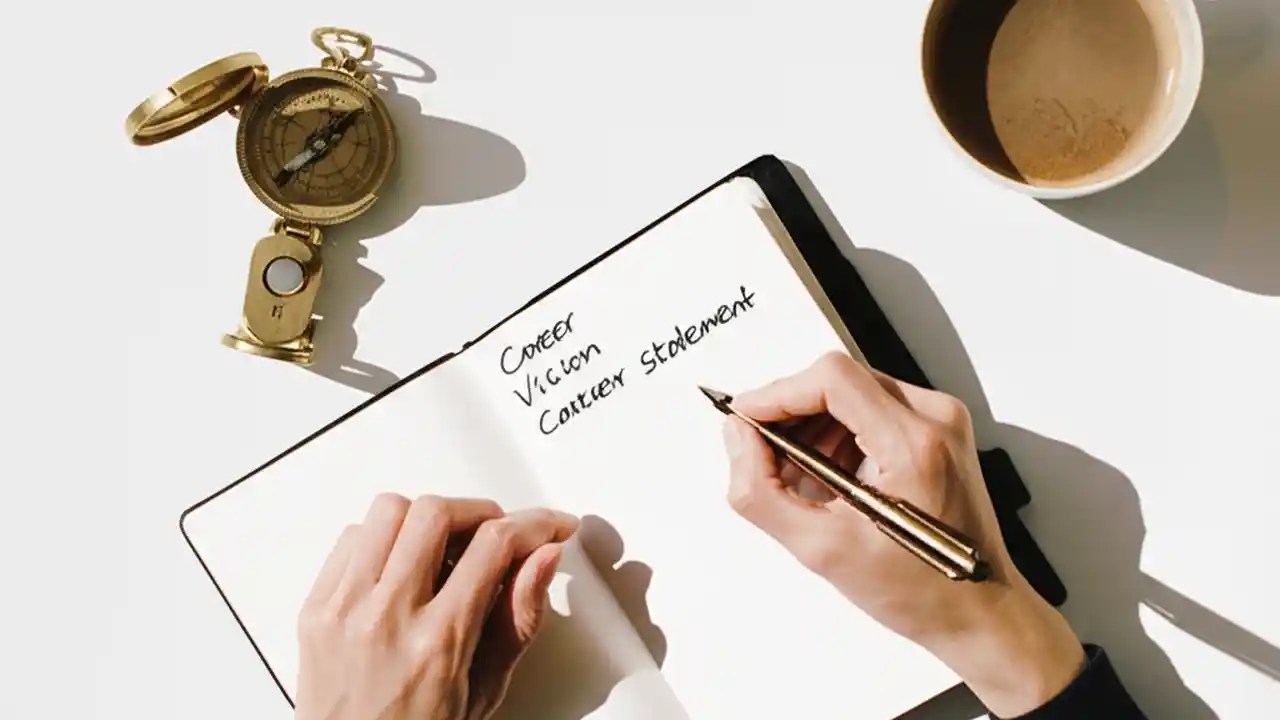 Career
Vision
Career Statement